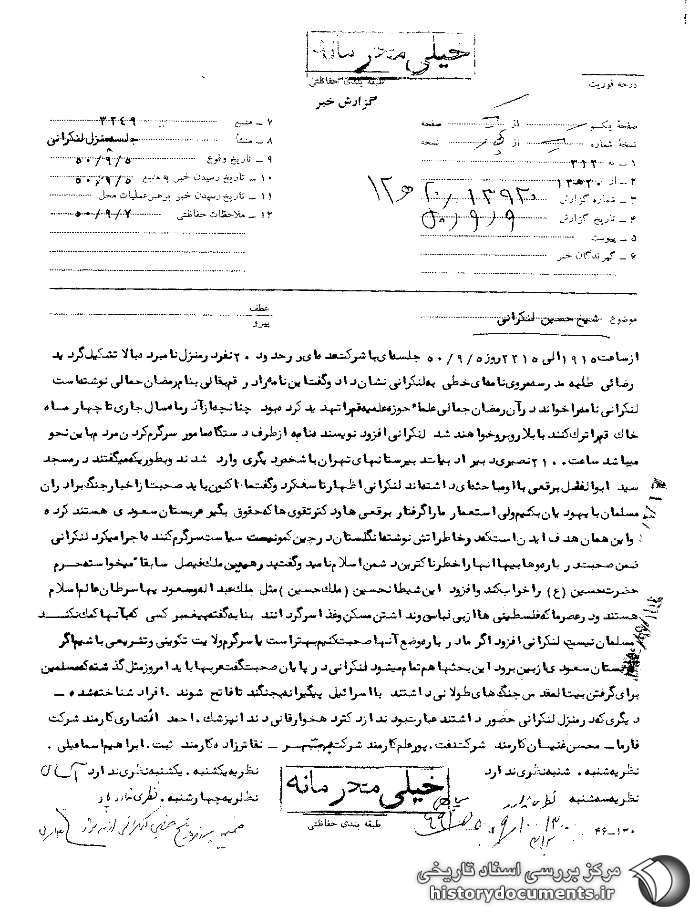 خیلی محرمانه
طبقه بندی حفاظتی
گزارش خبر
درجه فوریت
صفحه یکم از صفحه
نسخه شماره از نسخه
۱ – به ۳۱۲
۲ – از ۲۰ ه ۱۲
۳ – شماره گزارش ۱۳۹۲۰/ ۲۰ ه ۱۲
۴ – تاریخ گزارش ۵۰/۹/۹
۵ – پیوست
۶ – گیرندگان خبر
۷ – منبع ۳۲۴۹
۸ – منشأ جلسه منزل لنکرانی
۹ – تاریخ وقوع ۵۰/۹/۵
۱۰ – تاریخ رسیدن خبر به منبع ۵۰/۹/۵
۱۱ – تاریخ رسیدن خبر برهبر عملیات محل
۱۲ – ملاحظات حفاظتی ۵۰/۹/۷
موضوع شیخ حسین لنکرانی
عطف
پیرو
از ساعت ۱۹۱۵ الی ۲۲۱۵ روز ۵۰/۹/۵ جلسه‌ای با شرکت عده‌ای در حدود ۲۰ نفر در منزل نامبرده بالا تشکیل گردید
رضائی طلبه مدرسه مروی نامه‌ای خطی به لنکرانی نشان داد و گفت این نامه را در قم بقالی بنام رمضان حمالی نوشته است
لنکرانی نامه را خواند در آن رمضان حمالی علماء حوزه علمیه قم را تهدید کرده بود چنانچه از آذر ماه سال جاری تا چهار ماه
خاک قم را ترک نکنند با بلا روبرو خواهند شد لنکرانی افزود نویسنده نامه از طرف دستگاه مامور سرگرم کردن مردم باین نحو
میباشد ساعت ۲۱۰۰ نصیری دبیر ادبیات دبیرستانهای تهران با شخص دیگری وارد شدند و بطوریکه میگفتند در مسجد
سید ابوالفضل برقعی با او مباحثه‌ای داشته‌اند لنکرانی اظهار تاسف کرد و گفت ما اکنون باید صحبت از اخبار جنگ برادران
مسلمان با یهودیان بکنیم ولی استعمار ما را گرفتار برقعی‌ها و دکتر تقوی‌ها که حقوق بگیر عربستان سعودی هستند کرده
و این همان هدف ایدن است که در خاطراتش نوشته انگلستان در چین کمونیست سیاست سرگرم کننده اجرا میکرد لنکرانی
ضمن صحبت درباره وهابیها آنها را خطرناکترین دشمن اسلام نامید و گفت پدر همین ملک فیصل سابقا میخواسته حرم
حضرت حسین (ع) را خراب کند و افزود این شیطان حسین (ملک حسین) مثل ملک عبداله و سعودیها سرطان عالم اسلام
هستند و در عصر ما که فلسطینی‌ها از بی لباسی و نداشتن مسکن و غذا سرگردانند بنا به گفته پیغمبر کسی که بآنها کمک نکند
مسلمان نیست لنکرانی افزود اگر ما درباره وضع آنها صحبت کنیم بهتر است یا سرگرم ولایت تکوینی و تشریعی باشیم اگر
عربستان سعودی از بین برود این بحثها هم تمام میشود لنکرانی در پایان صحبت گفت عربها باید امروز مثل گذشته که مسلمین
برای گرفتن بیت المقدس جنگ‌های طولانی داشتند با اسرائیل پیگیرانه بجنگند تا فاتح شوند . افراد شناخته شده –
دیگری که در منزل لنکرانی حضور داشتند عبارت بودند از دکتر دهخوارقانی دندانپزشک . احمد اقتصاری کارمند شرکت
فارما – محسن غنیمیان کارمند شرکت نفت . پور علم کارمند شرکت – نقاش زاده کارمند ثبت . ابراهیم اسماعیلی .
نظریه شنبه . شنبه نظری ندارد
نظریه یکشنبه . یکشنبه نظری ندارد
نظریه سه‌شنبه نظری ندارد
نظریه چهارشنبه . نظری ندارد
خیلی محرمانه
طبقه بندی حفاظتی
۴۶–۱۳۰
۳۱۲
مرکز بررسی اسناد تاریخی
historydocuments.ir